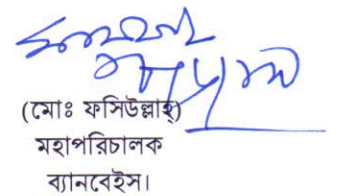 (মোঃ ফসিউল্লাহ্)
মহাপরিচালক
ব্যানবেইস।